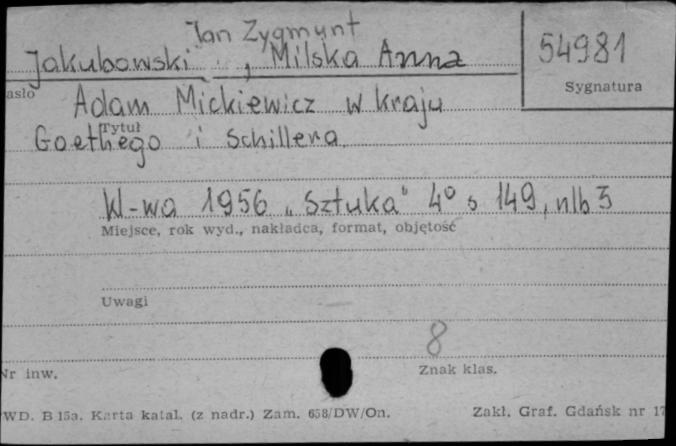 Jan Zygmunt
Jakubowski, Milska Anna
54981
Sygnatura
asło
Adam Mickiewicz w kraju
Tytuł
Goethego i Schillera
W-wa 1956 „Sztuka" 4° s 149, nlb 3
Miejsce, rok wyd., nakładca, format, objętość
Uwagi
8
Nr inw.
Znak klas.
WD. B 15a. Karta katal. (z nadr.) Zam. 658/DW/On.
Zakł. Graf. Gdańsk nr 17